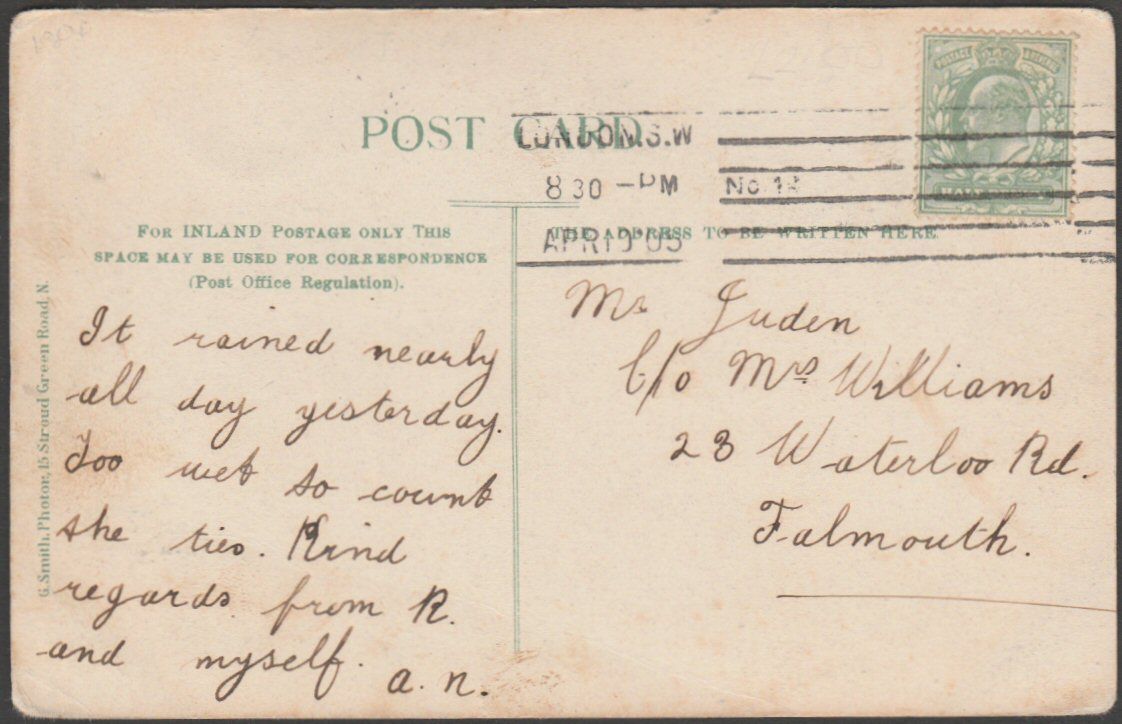 POST CARD
LONDON.S.W
8 30 - PM
No. 14
POSTAGE REVENUE
FOR INLAND POSTAGE ONLY THIS
SPACE MAY BE USED FOR CORRESPONDENCE
(Post Office Regulation).
THE ADDRESS TO BE WRITTEN HERE
G. Smith, Photor, 15 Stroud Green Road, N.
It rained nearly
all day yesterday.
Too wet to count
the ties. Kind
regards from R.
and myself.
a. n.
Mr Juden
C/o Mrs Williams
23 Waterloo Rd.
Falmouth.